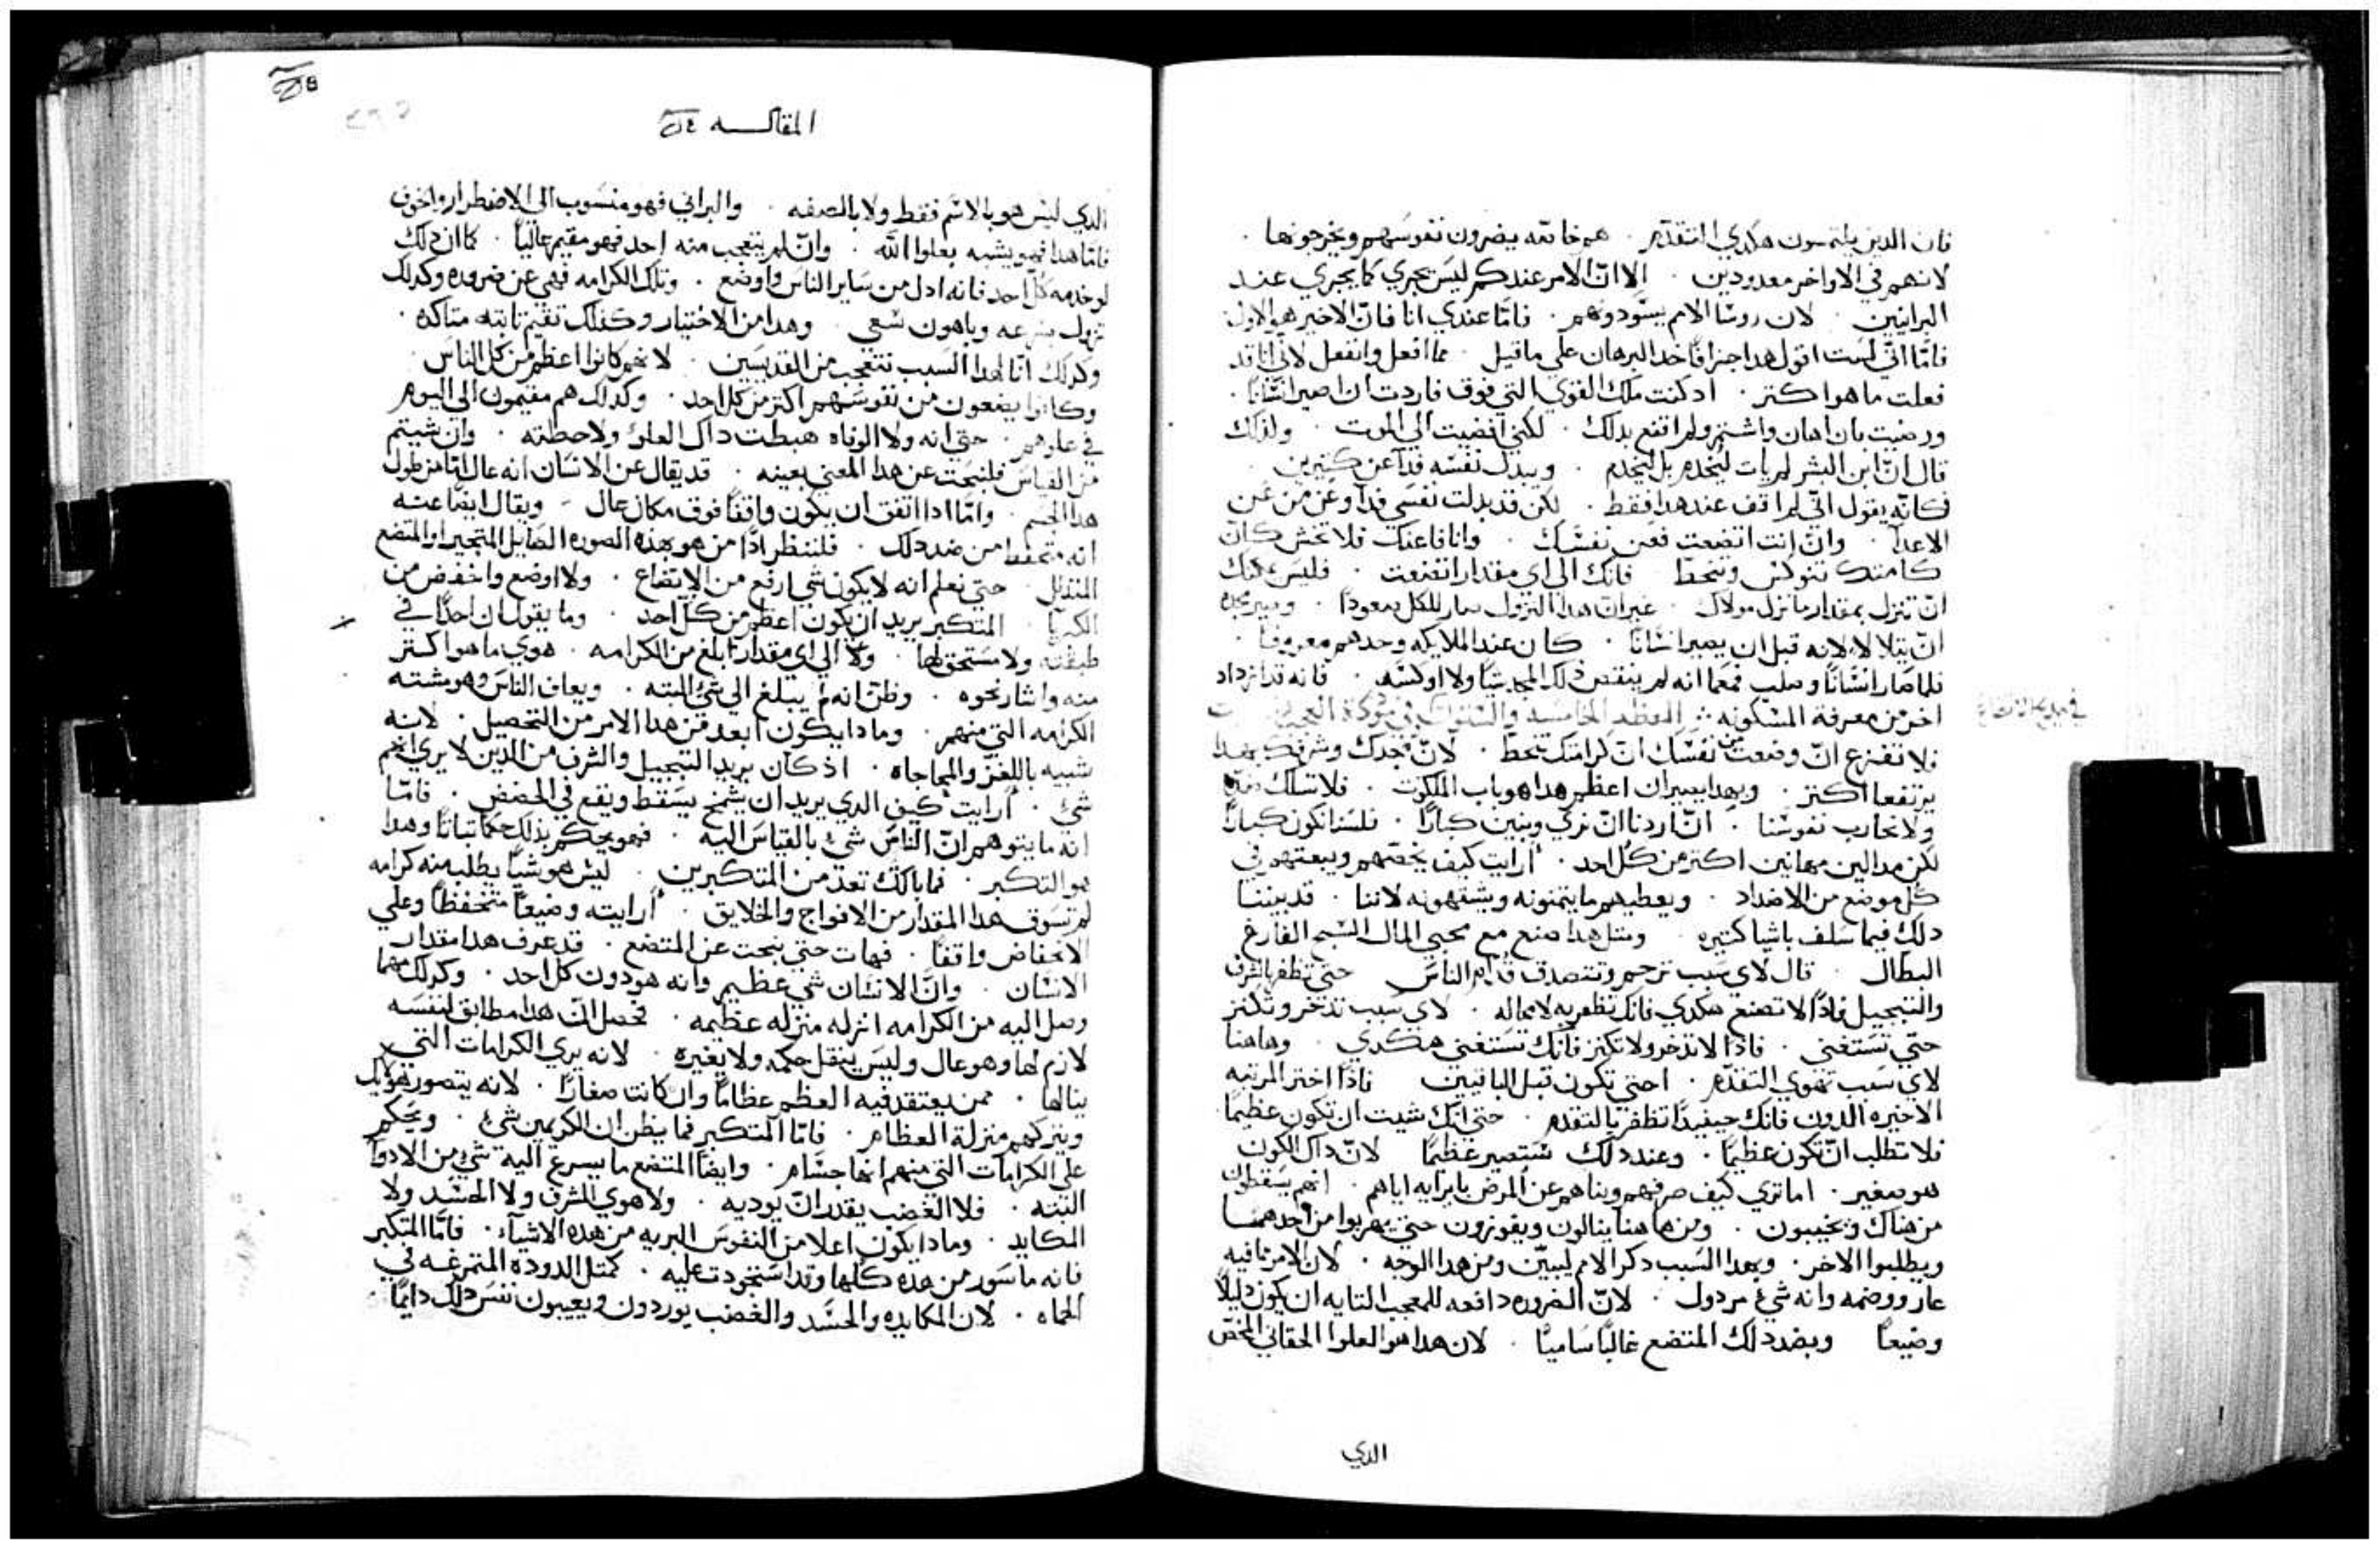 فان الدين يلتمسون هكدي التقدّم . هم خاصّه يضرون نفوسهم ويخرجونها .
لانهم في الاواخر معدودين . الا انّ الامر عندكم ليس يجري كما يجري عند
البرانيين . لان روسا الامم يسودونهم . فامّا عندي انا فانّ الاخير هو الاول .
فامّا انّي لست اقول هدا جزافًا خد البرهان علي ما قيل . مما افعل وانفعل لاني انا قد
فعلت ما هو اكتر . ادكنت ملك القوي التي فوق فاردت ان اصير انسانًا .
ورضيت بان اهان واشتم ولم اقنع بدلك . لكني افضيت الي الموت . ولدلك
قال انّ ابن البشر لم يات ليُخدم بل ليَخدم . ويبدل نفسه فدآ عن كتيرين .
فكانّه يقول انّي لم اقف عند هدا فقط . لكن قد بدلت نفسي فدآ وعن من عن
الاعدآ . وانّ انت اتضعت فعن نفسك . وانا فاعنك فلا تخش كانّ
كرامتك تنوكس وتنحطّ فانك الي اي مقدار اتضعت . فليس يمكنك
انّ تنزل بمقدار ما نزل مولاك . غير انّ هدا النزول صار للكل صعودًا . وصير مجده
انّ يتلالا لانه قبل ان يصير انسانًا . كان عند الملايكه وحدهم معروفًا .
فلما صار انسانًا وصلب فمعما انه لم ينقص دلك المجد شيًا ولا اوكسه . فانه قد ازداد
اخر من معرفة المسكونه العظه الخامسه والستون
فلا تفزع انّ وضعت من نفسك انّ كرامتك تنحطّ . لانّ مجدك وشرفك بهدا
يرتفعا اكتر . وبهدا يصيران اعظم هدا هو باب الملكوت . فلا تسلك ضدّه
ولا نحارب نفوسنا . انّ اردنا انّ نري وبنين كبارًا . فلسنا نكون كبارًا
لكن مدالين مهانين اكتر من كل احد . ارايت كيف يحضّهم ويبعتهم في
كل موضع من الاضداد . ويعطيهم ما يتمنونه ويشتهونه لاننا . قد بيننا
دلك فيما سلف باشيا كتيره . ومتل هدا صنع مع محبي المال السبح الفارغ
البطال . قال لاي سبب ترحم وتتصدق قدام الناس حتي تظفر بالشرف
والتبجيل فادًا لا تصنع هكدي فانك تظفر به لا محاله . لاي سبب تدخر وتكنز
حتي تستغني . فادًا لا تدخر ولا تكنز فانك تستغني هكدي . وهاهنا
لاي سبب تهوي التقدّم . احتي تكون قبل الباقيين فادًا اختر المرتبه
الاخيره الدون فانك حينيدًا تظفر بالتقدم . حتي انك شيت ان تكون عظيمًا
فلا تطلب انّ تكون عظيمًا . وعند دلك ستصير عظيمًا لانّ داك الكون
هو صغير . اما تري كيف صرفهم وبناهم عن المرض بايرايه اياهم . انهم يسقطون
من هناك ويخيبون . ومن هاهنا ينالون ويفوزون حتي يهربوا من احدهما
ويطلبوا الاخر . وبهدا السبب دكر الامم ليبيّن ومن هدا الوجه . لان الامر ما فيه
عار ووضمه وانه شيء مردول . لانّ الضروره دافعه للمعجب التايه ان يكون دليلًا
وضيعًا وبضد دلك المتضع عاليًا ساميًا . لان هدا هو العلوا الحقاني المخصّ
الدي
المقاله
الدي ليس هو بالاسم فقط ولا بالصفه . والبراني فهو منسوب الي الاضطرار والخوف
فامّا هدا فهو يشبه بعلوا الله . وانّ لم يتعجب منه احد فهو مقيم عاليًا . كما ان دلك
لو خدمه كل احد فانه ادل من ساير الناس واوضع . وتلك الكرامه فهي عن ضروره وكدلك
تزول بسرعه وباهون سعي . وهدا من الاختيار وكدلك تقيم تابته متاكده .
وكدلك انّا لهدا السبب نتعجب من القديسين . لانهم كانوا اعظم من كل الناس
وكانوا يضعون من نفوسهم اكتر من كل احد . وكدلك هم مقيمون الي اليوم
في علوهم . حتي انه ولا الوفاه هبطت داك العلوّ ولا حطته . وان شيتم
من القياس فلنبحت عن هدا المعني بعينه . قد يقال عن الانسان انه عال امّا من طول
هدا الجسم . وامّا ادا اتفق ان يكون واقفًا فوق مكان عال . ويقال ايضًا عنه
انه متحفظ من ضد دلك . فلننظر ادًا من هو بهده الصوره الصايل المتجبر او المتضع
المتدلل . حتي نعلم انه لا يكون شي ارفع من الاتضاع . ولا اوضع واخفض من
الكبريا . المتكبر يريد ان يكون اعظم من كل احد . وما يقول ان احدًا في
طبقته ولا مستحق لها . ولا الي اي مقدار ابلغ من الكرامه . هوي ما هو اكتر
منه واشار نحوه . وظن انه لم يبلغ الي شيء البته . ويعاف الناس وهو مشته
الكرامه التي منهم . وما دا يكون ابعد من هدا الامر من التحصيل . لانه
شبيه باللغز والمحاجاه . اد كان يريد التبجيل والشرف من الدين لا يري انهم
شيء . ارايت كيف الدي يريد ان يشمخ يسقط ويقع في الحضض . فامّا
انه ما يتوهم انّ الناس شيء بالقياس اليه . فهو يحكم بدلك حكمًا تباتًا وهدا
هو التكبر . فما بالك تعدّ من المتكبرين . ليس هو شيًا يطلب منه كرامه
لم تسوق هدا المقدار من الافواج والخلايق . ارايته وضيعًا متخفضًا وعلي
الانخفاض واقفًا . فهات حتي نبحت عن المتضع . قد عرف هدا مقدار
الانسان . وانّ الانسان شي عظيم وانه هو دون كل احد . وكدلك مهما
وصل اليه من الكرامه انزله منزله عظيمه . فحصل انّ هدا مطابق لنفسه
لازم لها وهو عال وليس ينقل حكمه ولا يغيره . لانه يري الكرامات التي
ينالها . ممن يعتقد فيه العظم عظامًا وان كانت صغارًا . لانه يتصور هولايك
وينزلهم منزلة العظام . فامّا المتكبر فما يظن ان الكريمين شيء . ويحكم
علي الكرامات التي منهم انها جسام . وايضًا المتضع ما يسرع اليه شيء من الادوآ
البته . فلا الغضب يقدر انّ يوديه . ولا هوي الشرف ولا الحسد ولا
المكايد . وما دا يكون اعلا من النفوس البريه من هده الاشيآء . فامّا المتكبر
فانه ماسور من هده كلها وقد استحودت عليه . كمتل الدوده المتمرغه في
الحماه . لان المكايده والحسد والغضب يوردون ويعيبون نفس دلك دايمًا .